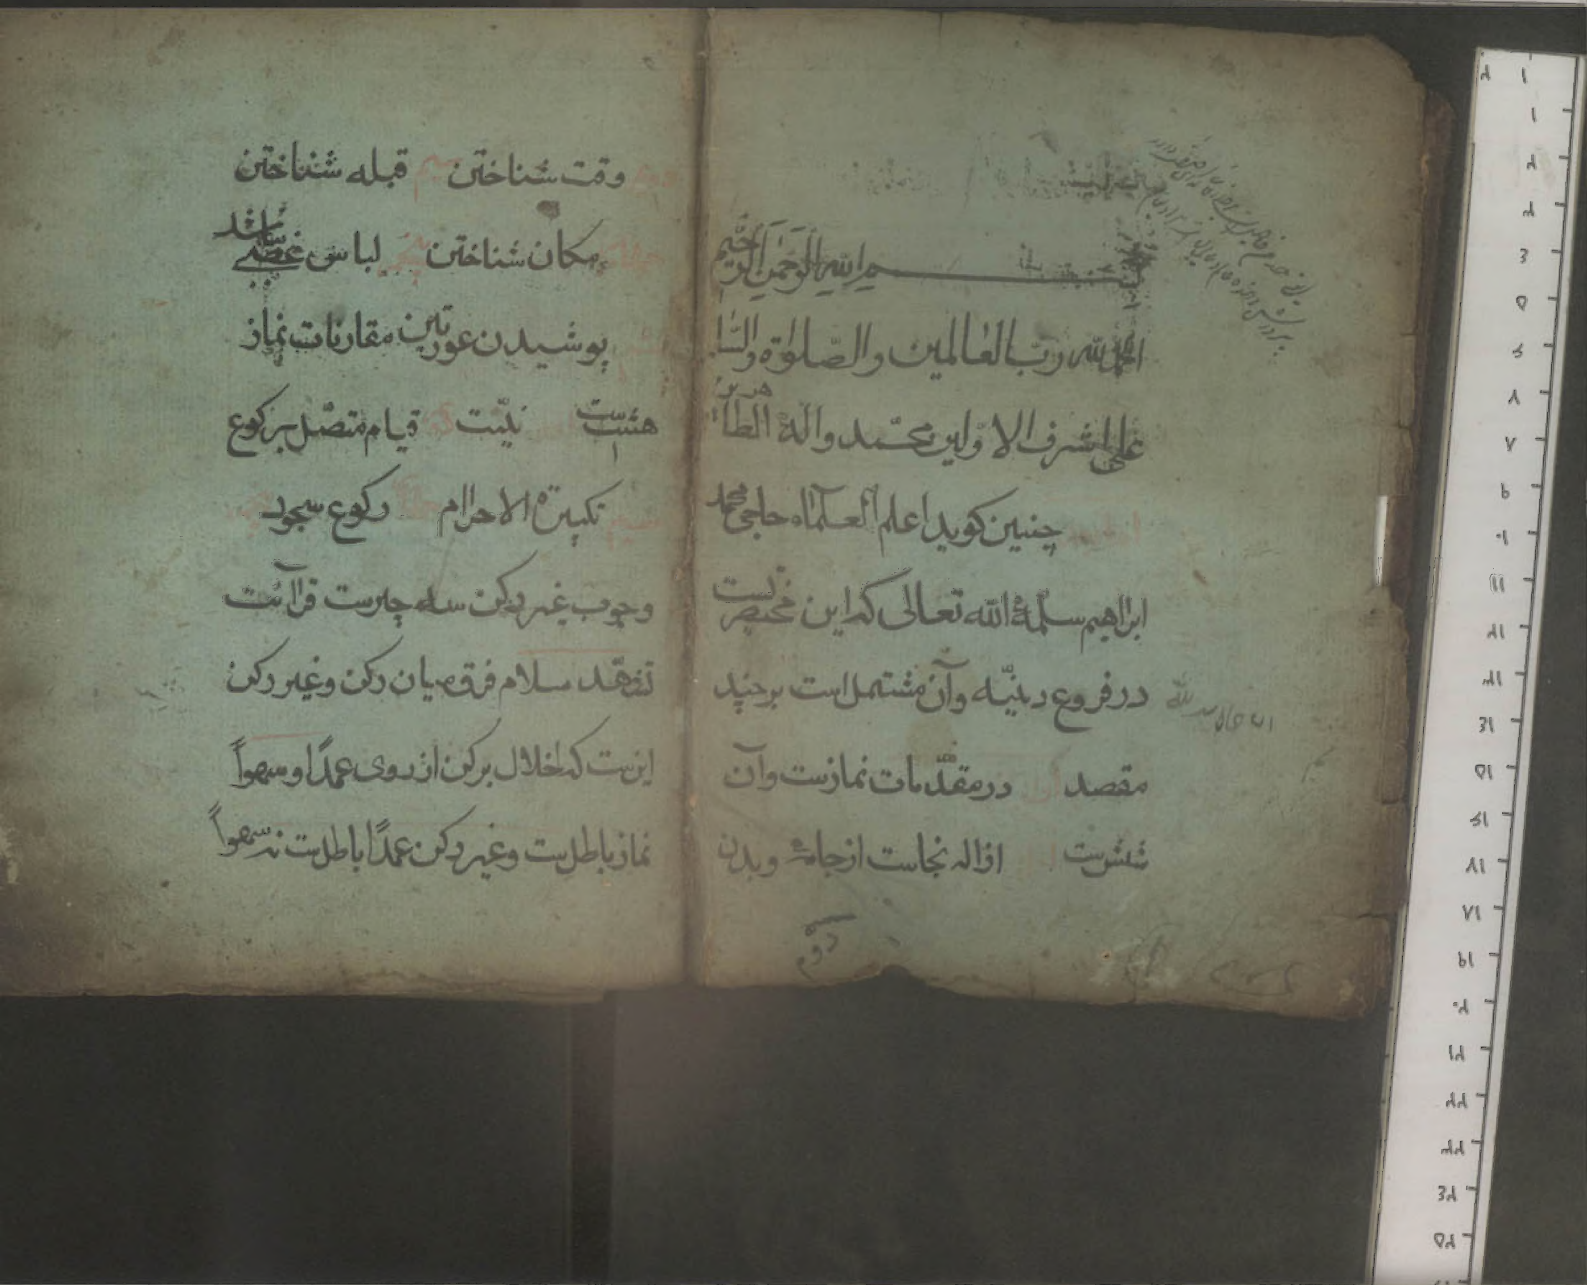 بسم الله الرحمن الرحيم
الحمد لله ربّ العالمين والصّلوٰة والسّلا
على اشرف الاوّلين محمّد وآله الطاهرين
چنين كويد اعلم العلماء حاجى محمد
ابراهيم سلّمه الله تعالى كه اين مختصريست
در فروع دينيّه وآن مشتمل است بر چند
مقصد در مقدّمات نمازست وآن
ششست ازاله نجاست از جامه وبدن
دوّم
وقت شناختن سيم قبله شناختن
مكان شناختن لباس غصبى نباشد
پوشيدن عورتين مقارنات نماز
هشتست نيّت قيام متصّل بركوع
تكبيرة الاحرام ركوع سجود
وجوب غير ركن سه چيزست قرآئت
تشهّد سلام فرق ميان ركن وغير ركن
اينست كه اخلال بركن از روى عمدًا وسهواً
نماز باطلست وغير ركن عمدًا باطلست نه سهواً